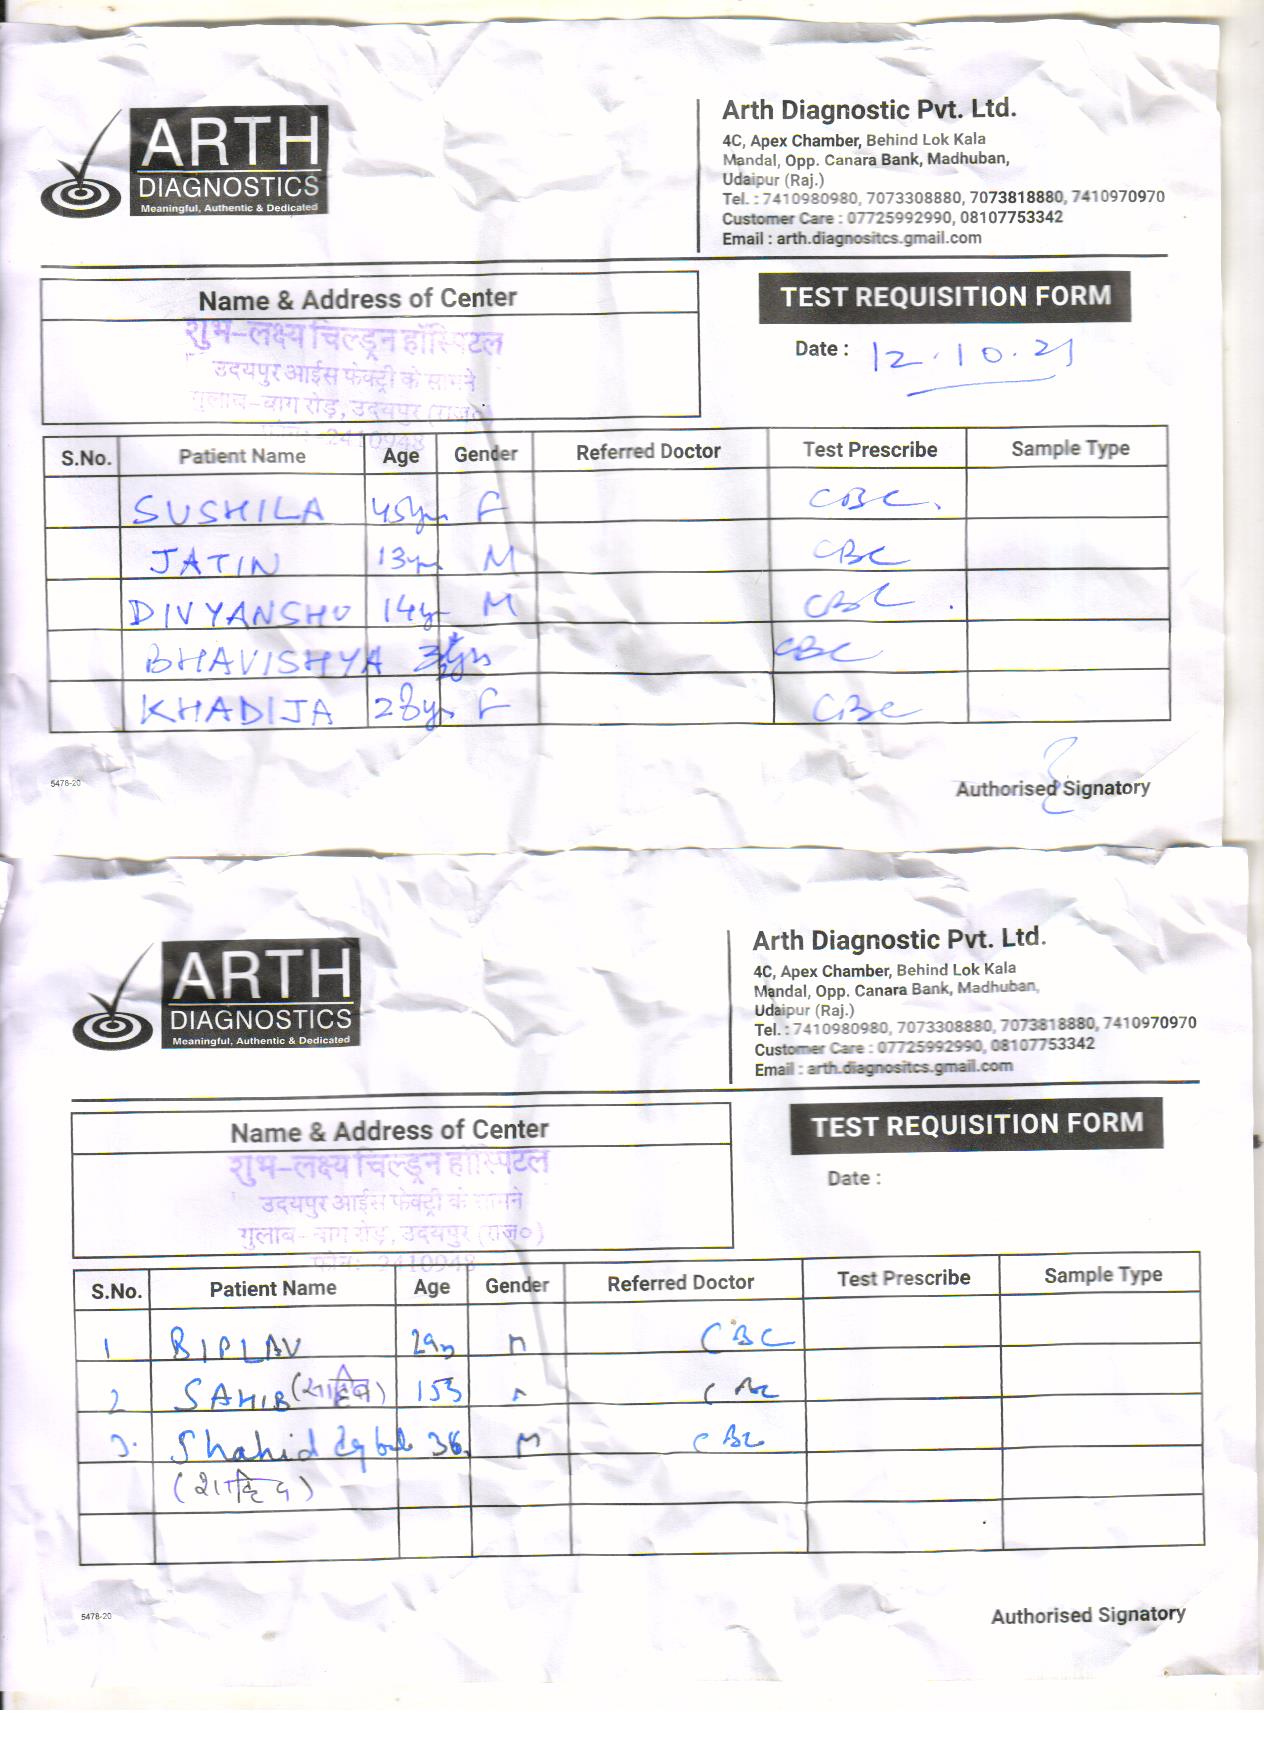 ARTH
DIAGNOSTICS
Meaningful, Authentic & Dedicated
Arth Diagnostic Pvt. Ltd.
4C, Apex Chamber, Behind Lok Kala
Mandal, Opp. Canara Bank, Madhuban,
Udaipur (Raj.)
Tel. : 7410980980, 7073308880, 7073818880, 7410970970
Customer Care : 07725992990, 08107753342
Email : arth.diagnositcs.gmail.com
Name & Address of Center
शुभ-लक्ष्य चिल्ड्रन हॉस्पिटल
उदयपुर आईस फेक्ट्री के सामने
गुलाब-बाग रोड़, उदयपुर (राज०)
फोन: 2410948
TEST REQUISITION FORM
Date : 12.10.21
S.No. Patient Name Age Gender Referred Doctor Test Prescribe Sample Type
SUSHILA 45yrs F CBC
JATIN 13yrs M CBC
DIVYANSHU 14yr M CBC
BHAVISHYA CBC
KHADIJA 28yrs F CBC
5478-20
Authorised Signatory
ARTH
DIAGNOSTICS
Meaningful, Authentic & Dedicated
Arth Diagnostic Pvt. Ltd.
4C, Apex Chamber, Behind Lok Kala
Mandal, Opp. Canara Bank, Madhuban,
Udaipur (Raj.)
Tel. : 7410980980, 7073308880, 7073818880, 7410970970
Customer Care : 07725992990, 08107753342
Email : arth.diagnositcs.gmail.com
Name & Address of Center
शुभ-लक्ष्य चिल्ड्रन हॉस्पिटल
उदयपुर आईस फेक्ट्री के सामने
गुलाब-बाग रोड़, उदयपुर (राज०)
फोन: 2410948
TEST REQUISITION FORM
Date :
S.No. Patient Name Age Gender Referred Doctor Test Prescribe Sample Type
1 BIPLAV M CBC
2 SAHIB (साहिब) CBC
3. Shahid 36 M CBC
(शाहिद)
5478-20
Authorised Signatory